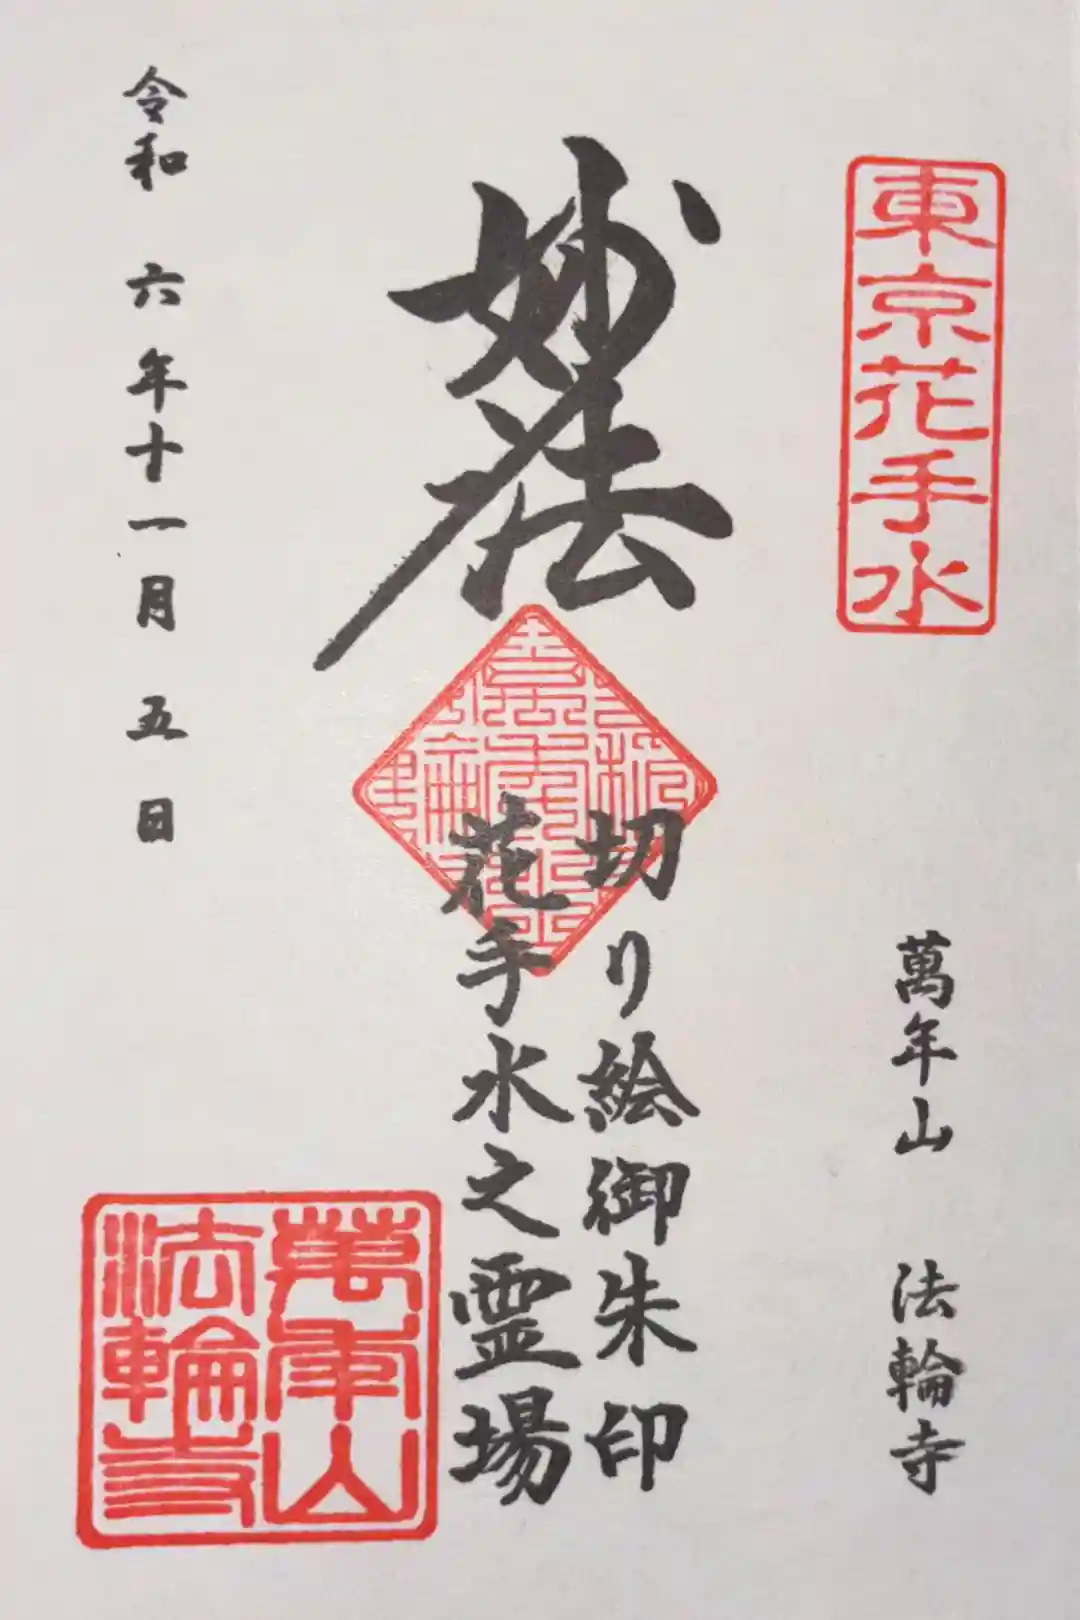 東京花手水
萬年山 法輪寺
妙法
切り絵御朱印
花手水之霊場
令和 六年十一月 五日
萬年山
法輪寺